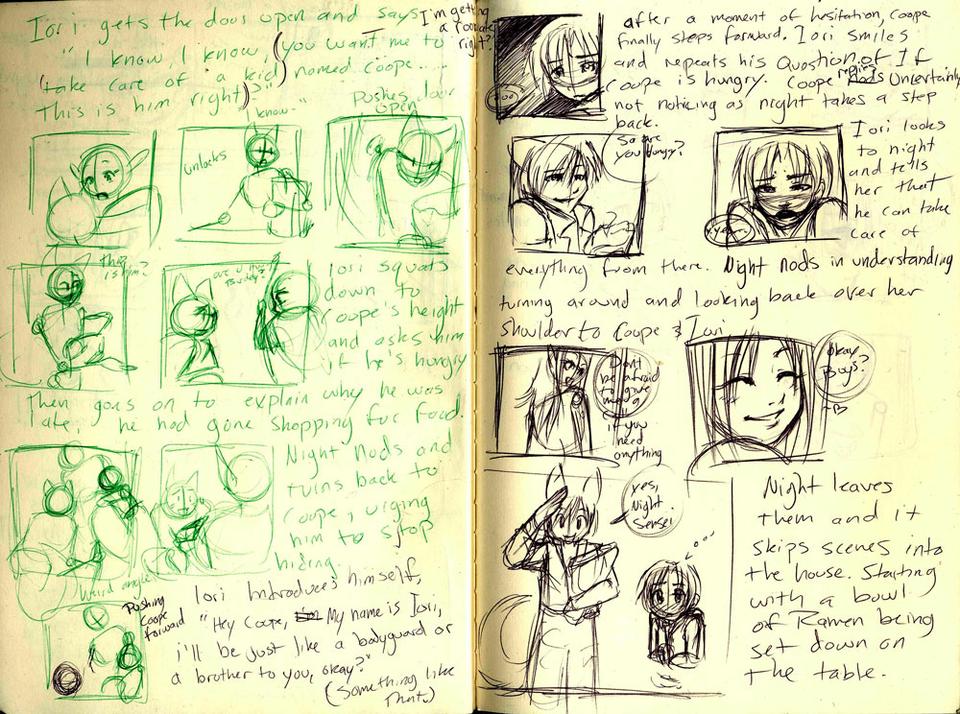 Iori gets the door open and says
I'm getting
a roomate
right?
"I know, I know, (you want me to
take care of a kid) named coope....
This is him right?"
I know..
Pushes door
open
unlocks
this
is him?
are u hungry
Buddy?
Iori squats
down to
Coope's height
and asks him
if he's hungry
Then goes on to explain why he was
late.. he had gone shopping for food.
Night Nods and
turns back to
Coope, urging
him to stop
hiding.
Weird angle
Pushing
Coope
forward
Iori Introduces himself,
"Hey Coope, My name is Iori,
i'll be just like a bodyguard or
a brother to you, okay?"
(Something like
that.)
after a moment of hesitation, Coope
finally steps forward. Iori smiles
and repeats his Question of If
Coope is hungry. Coope replies Uncertainly
not noticing as night takes a step
back.
So are
you hungry?
Iori looks
to night
and tells
her that
he can take
care of
everything from there. Night nods in understanding
turning around and looking back over her
shoulder to Coope & Iori
Don't
be afraid
to give
me a
call
if you
need
anything
okay
Boys?
yes,
Night
Sensei
Night leaves
them and it
skips scenes into
the house. Starting
with a bowl
of Ramen being
set down on
the table.